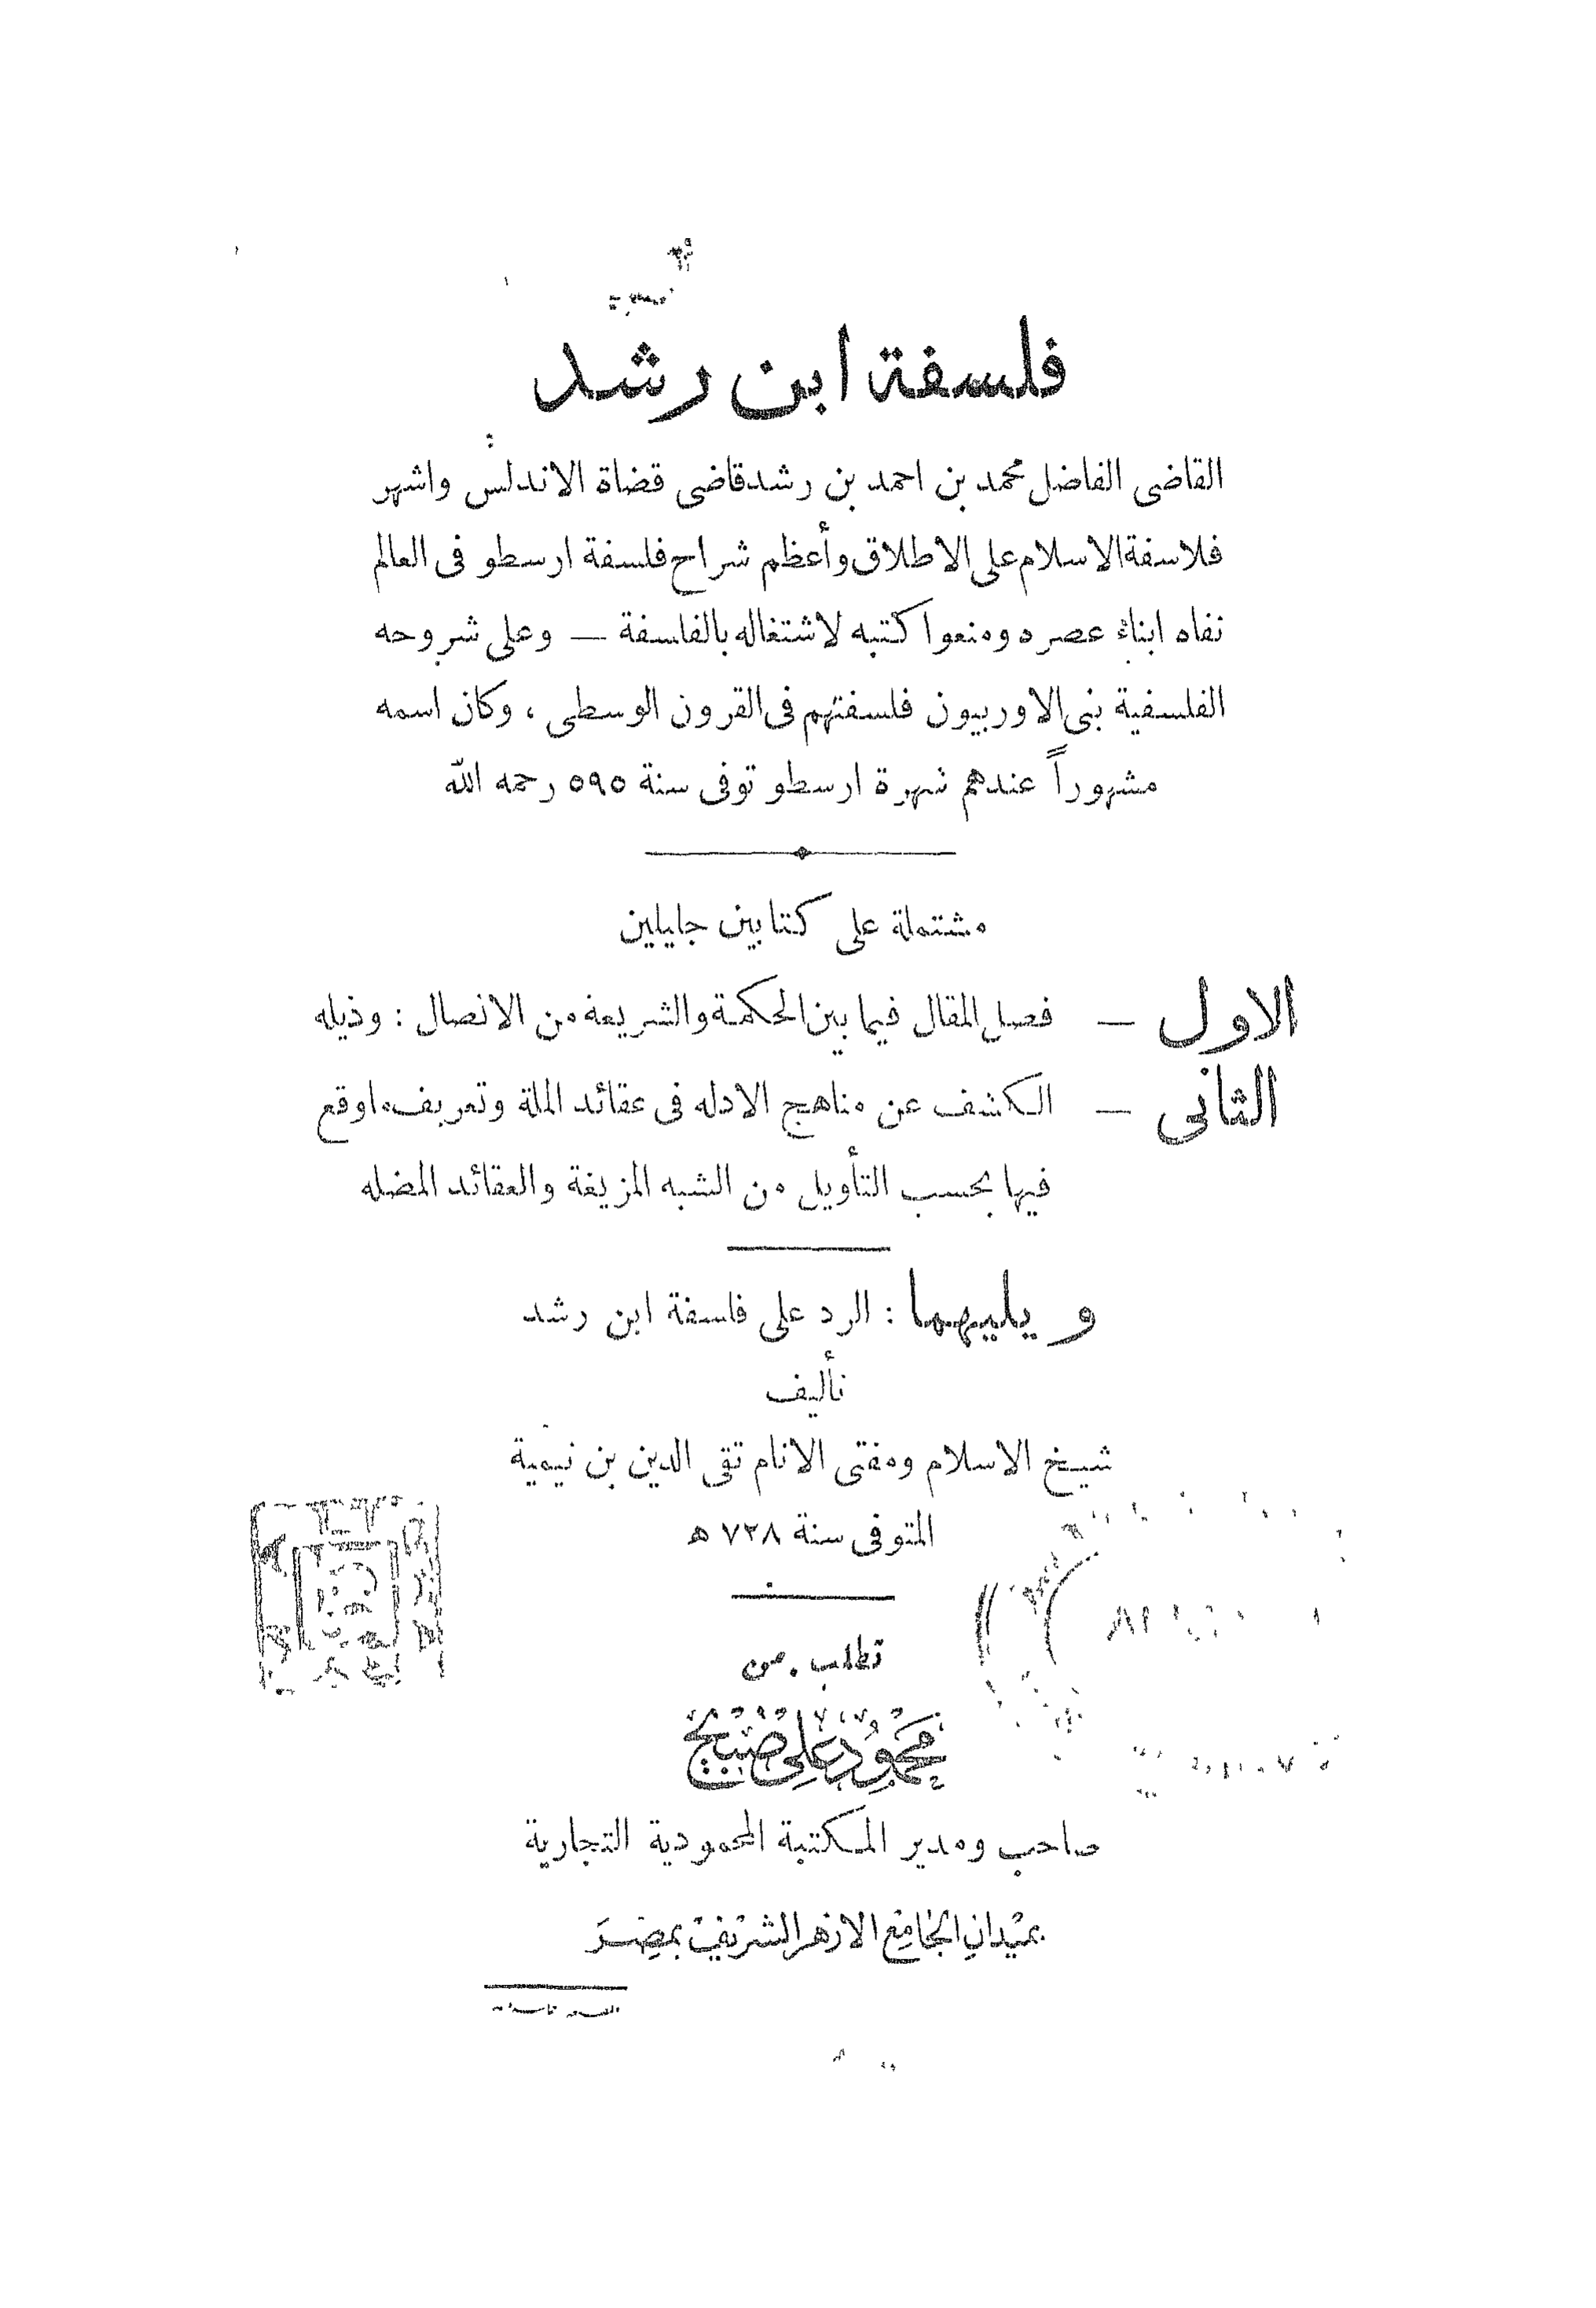 فلسفة ابن رشد
القاضى الفاضل محمد بن احمد بن رشد قاضى قضاة الاندلس واشهر
فلاسفة الاسلام على الاطلاق وأعظم شراح فلسفة ارسطو فى العالم
نفاه ابناء عصره ومنعوا كتبه لاشتغاله بالفلسفة — وعلى شروحه
الفلسفية بنى الاوربيون فلسفتهم فى القرون الوسطى ، وكان اسمه
مشهوراً عندهم شهرة ارسطو توفى سنة ٥٩٥ رحمه الله
مشتملة على كتابين جليلين
الاول — فصل المقال فيما بين الحكمة والشريعة من الاتصال : وذيله
الثانى — الكشف عن مناهج الادله فى عقائد الملة وتعريف ما وقع
فيها بحسب التأويل من الشبه المزيغة والعقائد المضله
ويليهما : الرد على فلسفة ابن رشد
تأليف
شيخ الاسلام ومفتى الانام تقى الدين بن تيمية
المتوفى سنة ٧٢٨ ه
تطلب من
محمود على صبيح
صاحب ومدير المكتبة المحمودية التجارية
بميدان الجامع الازهر الشريف بمصر